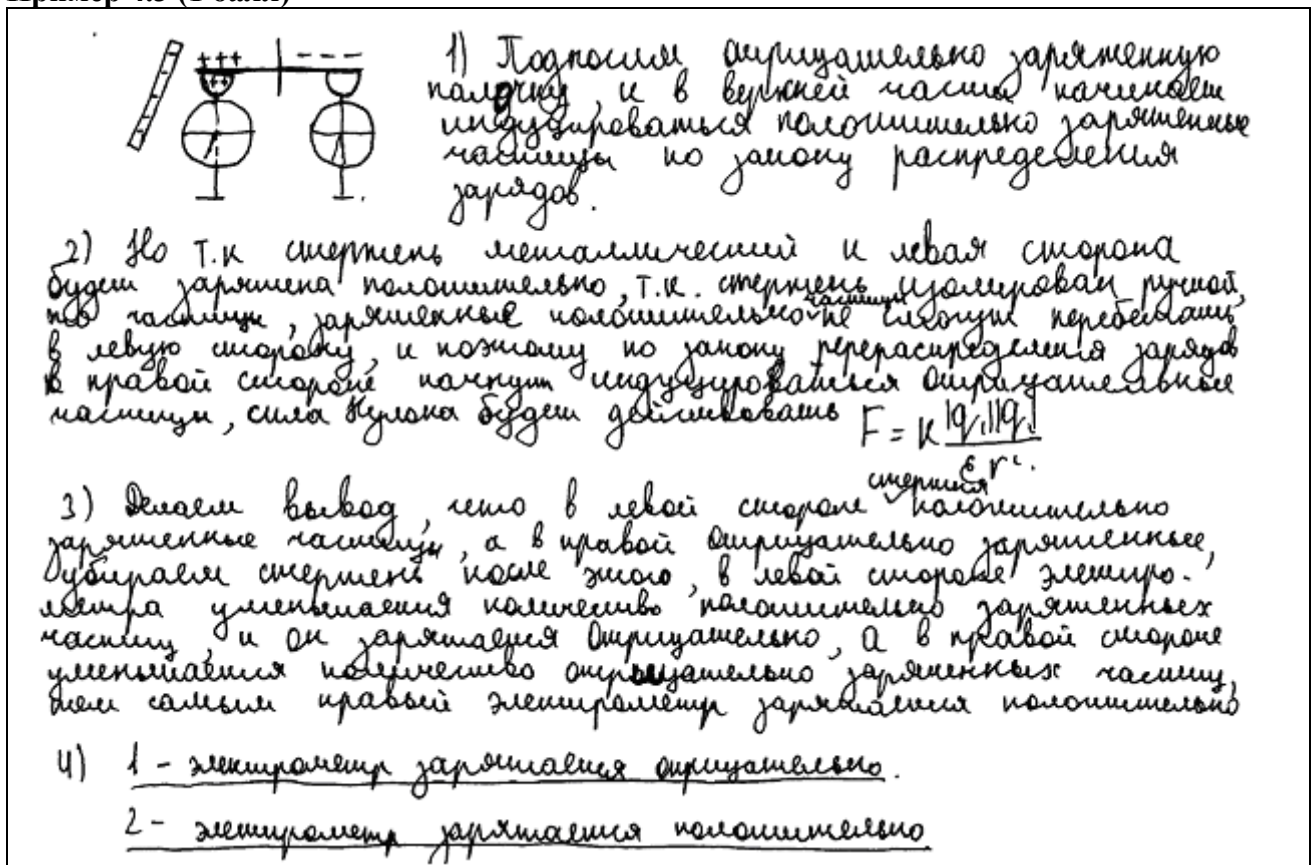 Пример 4.3 (1 балл)
1) Подносим отрицательно заряженную
палочку, и в верхней части начинает
индуцироваться положительно заряженные
частицы по закону распределения
зарядов.
2) Но т.к стержень металлический и левая сторона
будет заряжена положительно, т.к. стержень изолирован ручкой,
частицы, заряженные положительно частицы не смогут перебежать
в левую сторону, и поэтому по закону перераспределения зарядов
в правой стороне начнут индуцироваться отрицательные
частицы, сила Кулона будет действовать F = k |q₁||q₂| / ε r².
3) Делаем вывод, что в левой стороне стержня положительно
заряженные частицы, а в правой отрицательно заряженные,
убираем стержень после этого, в левой стороне электро-
метра уменьшается количество положительно заряженных
частиц, и он заряжается отрицательно, а в правой стороне
уменьшается количество отрицательно заряженных частиц,
тем самым правый электрометр заряжается положительно
4) 1 - электрометр заряжается отрицательно.
2 - электрометр заряжается положительно